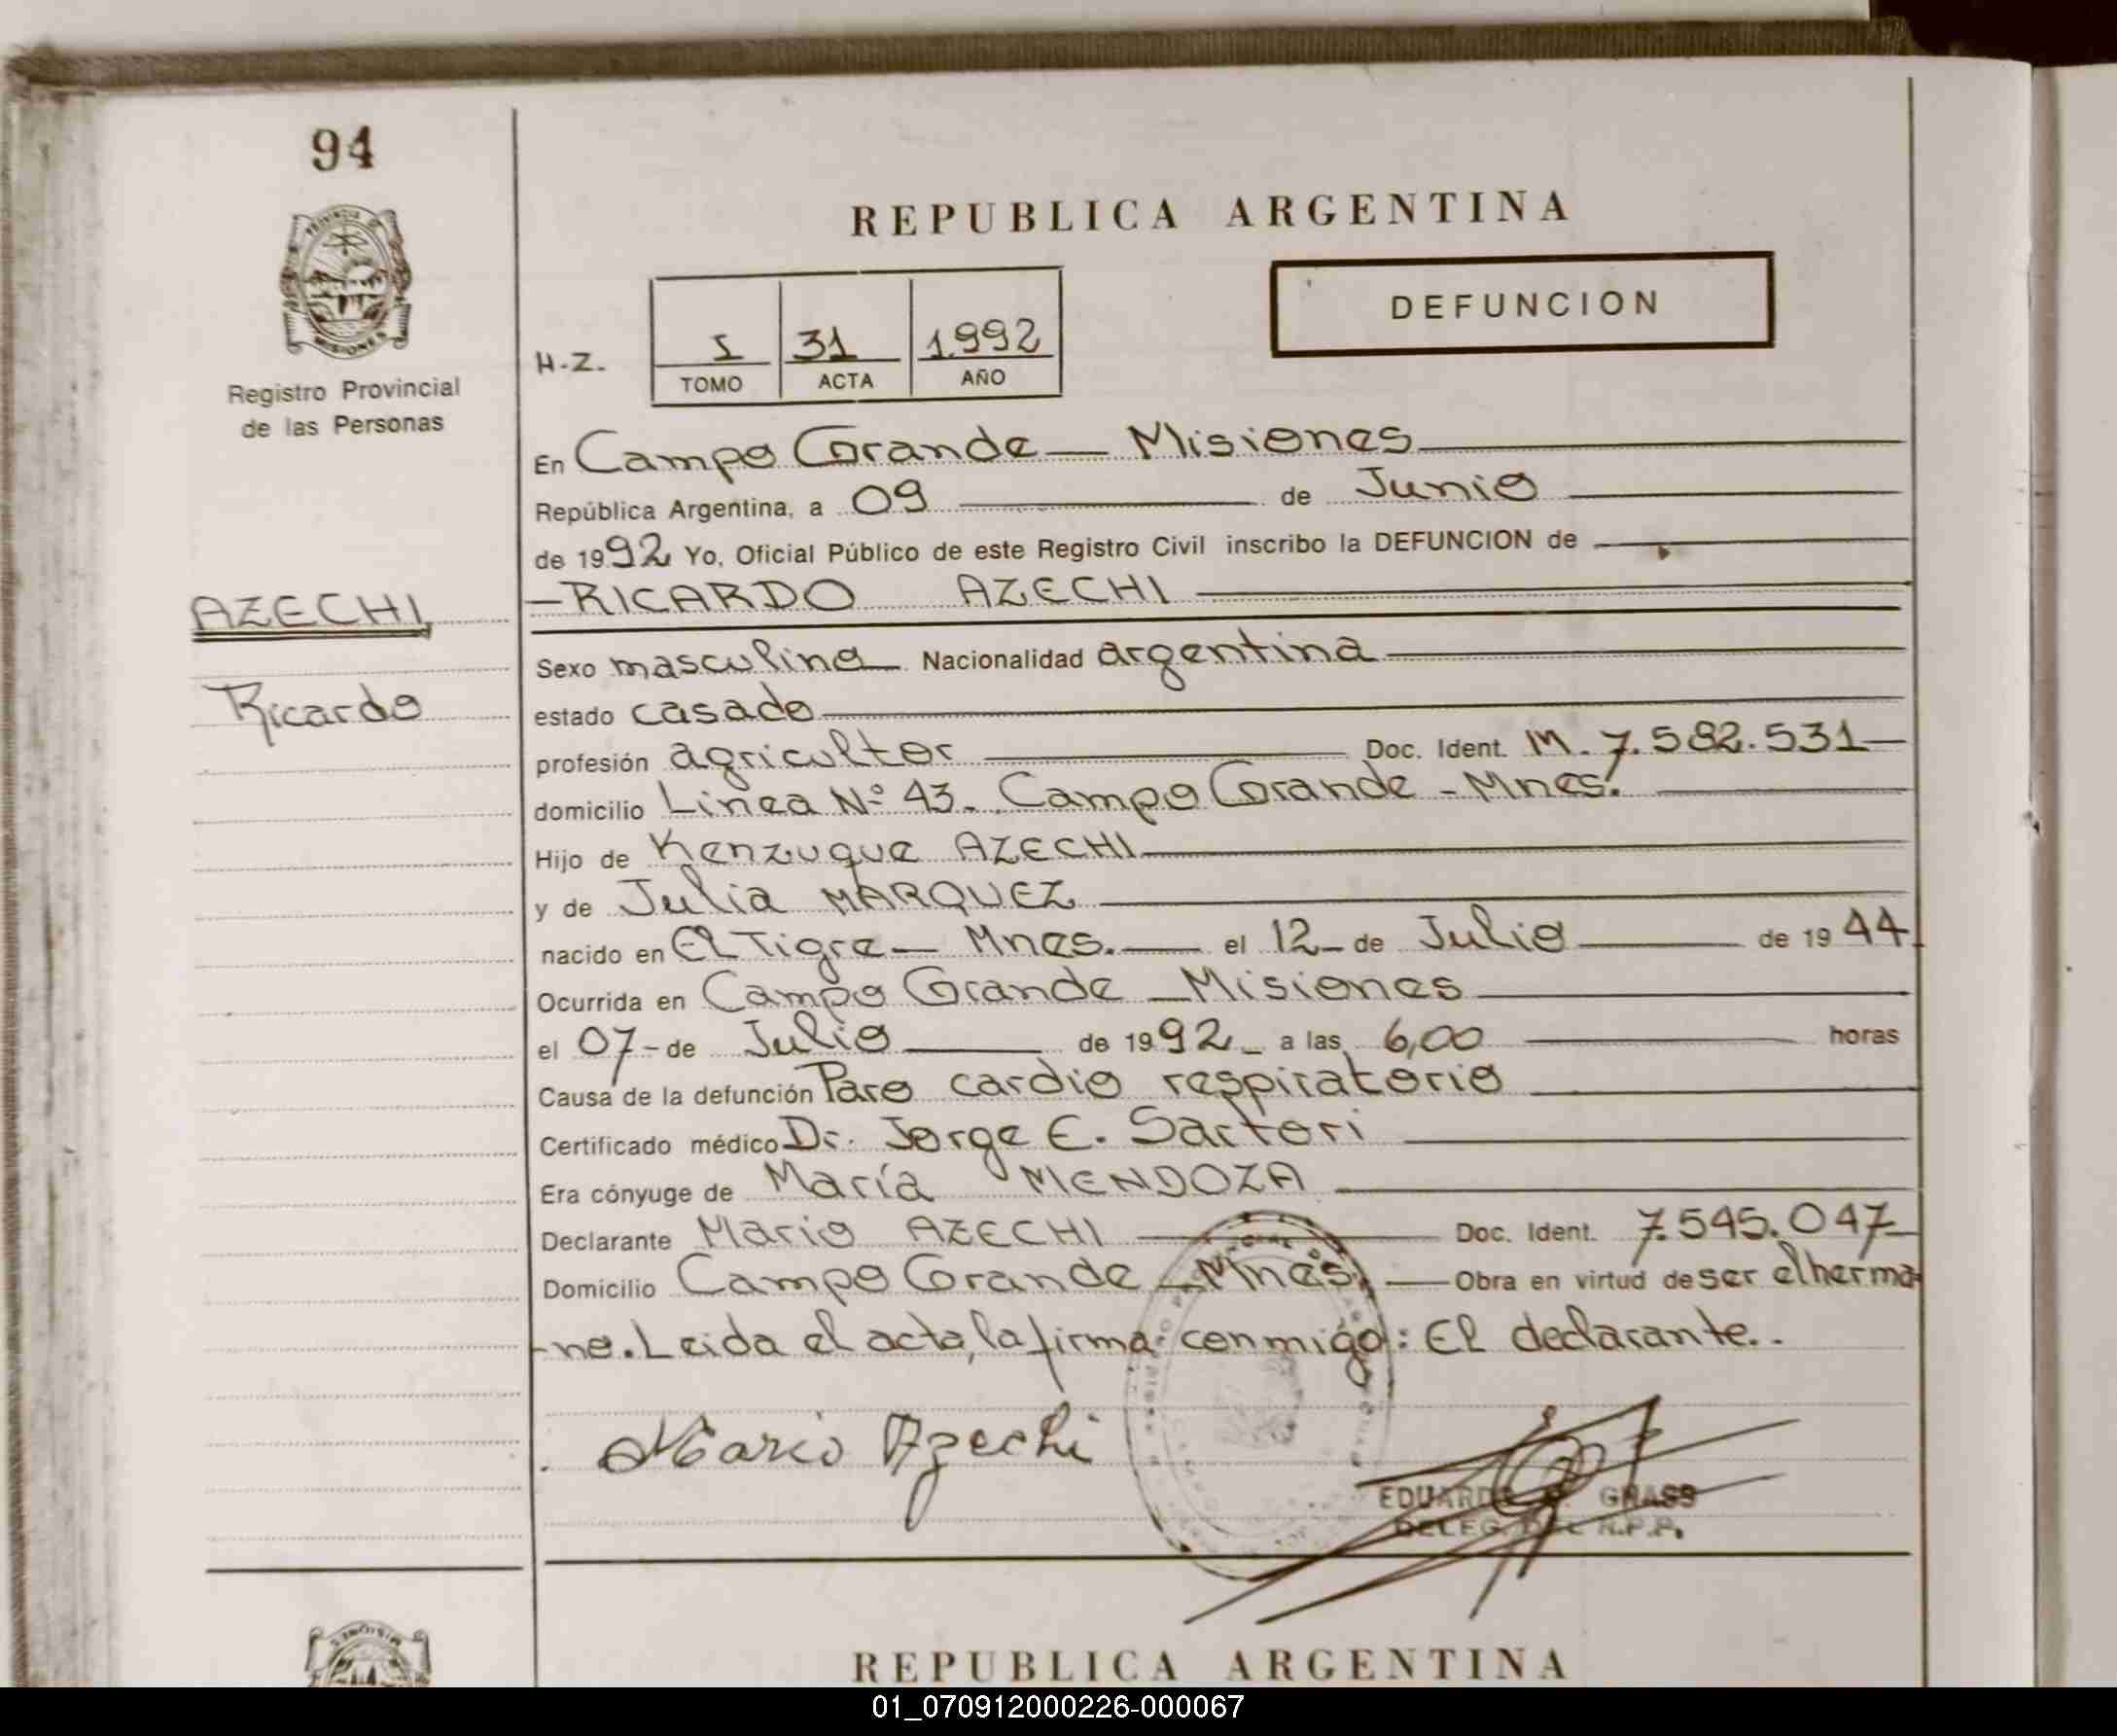 94
REPUBLICA ARGENTINA
DEFUNCION
PROVINCIA DE
MISIONES
Registro Provincial
de las Personas
H.Z.
I 31 1992
TOMO ACTA AÑO
En Campo Grande - Misiones
República Argentina, a 09 de Junio
de 1992 Yo, Oficial Público de este Registro Civil inscribo la DEFUNCION de
AZECHI, - RICARDO AZECHI
Sexo masculino Nacionalidad argentina
Ricardo estado casado
profesión agricultor Doc. Ident. M. 7.582.531
domicilio Linea Nº 43. Campo Grande - Mnes.
Hijo de Kenzuque AZECHI
y de Julia MARQUEZ
nacido en El Tigre - Mnes. el 12 - de Julio de 1944
Ocurrida en Campo Grande - Misiones
el 07 - de Julio de 1992 a las 6,00 horas
Causa de la defunción Paro cardio respiratorio
Certificado médico Dr. Jorge E. Sartori
Era cónyuge de María MENDOZA
Declarante Mario AZECHI Doc. Ident. 7.545.047
Domicilio Campo Grande - Mnes. Obra en virtud de ser el herma-
-no. Leida el acta, la firma conmigo: El declarante..
Mario Azechi
EDUARDO GRASS
DELEG. DEL R.P.P.
MISIONES
REPUBLICA ARGENTINA
01_070912000226-000067